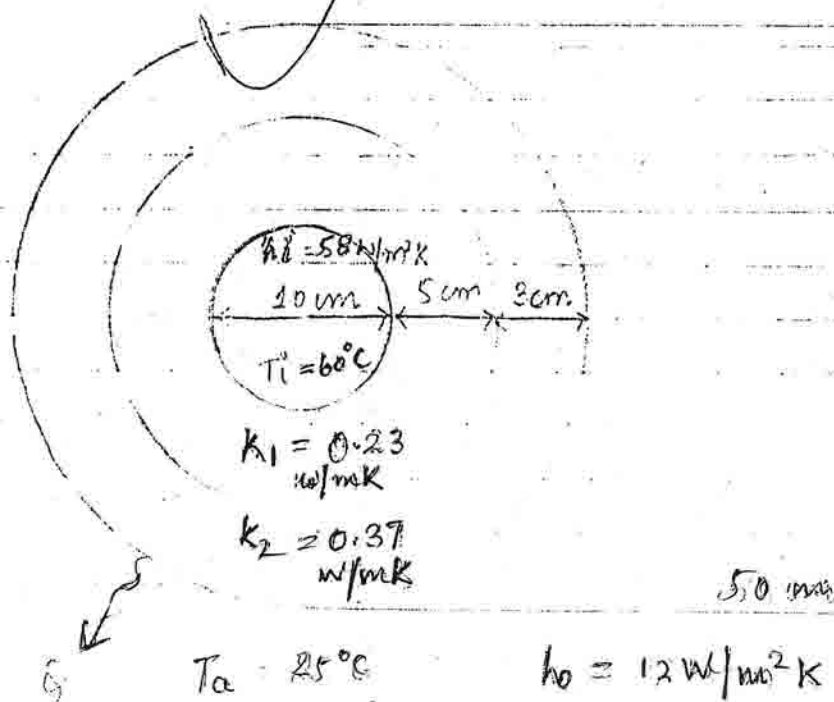 hi = 58 W/m²K
10 cm 5 cm 3 cm
Ti = 60°C
K1 = 0.23
w/mK
K2 = 0.37
w/mK
50
Ta 25°C h0 = 12 W/m² K